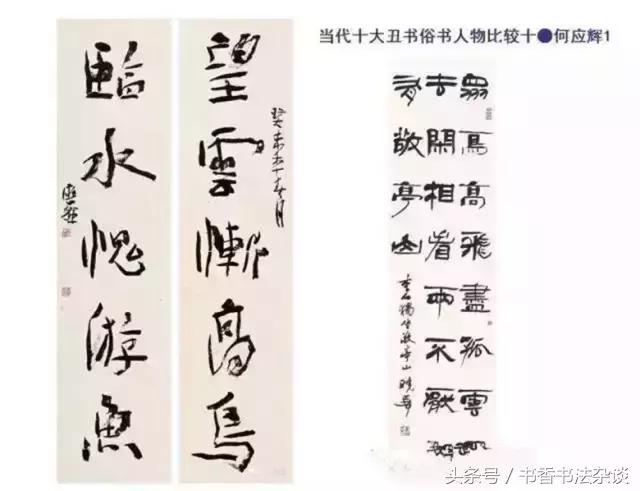 当代十大丑书俗书人物比较十●何应辉1
望雲慚高鳥
臨水愧游魚
應輝
眾鳥高飛盡孤雲獨
去閑相看兩不厭只
有敬亭山
李白獨坐敬亭山
头条号 / 书香书法杂谈